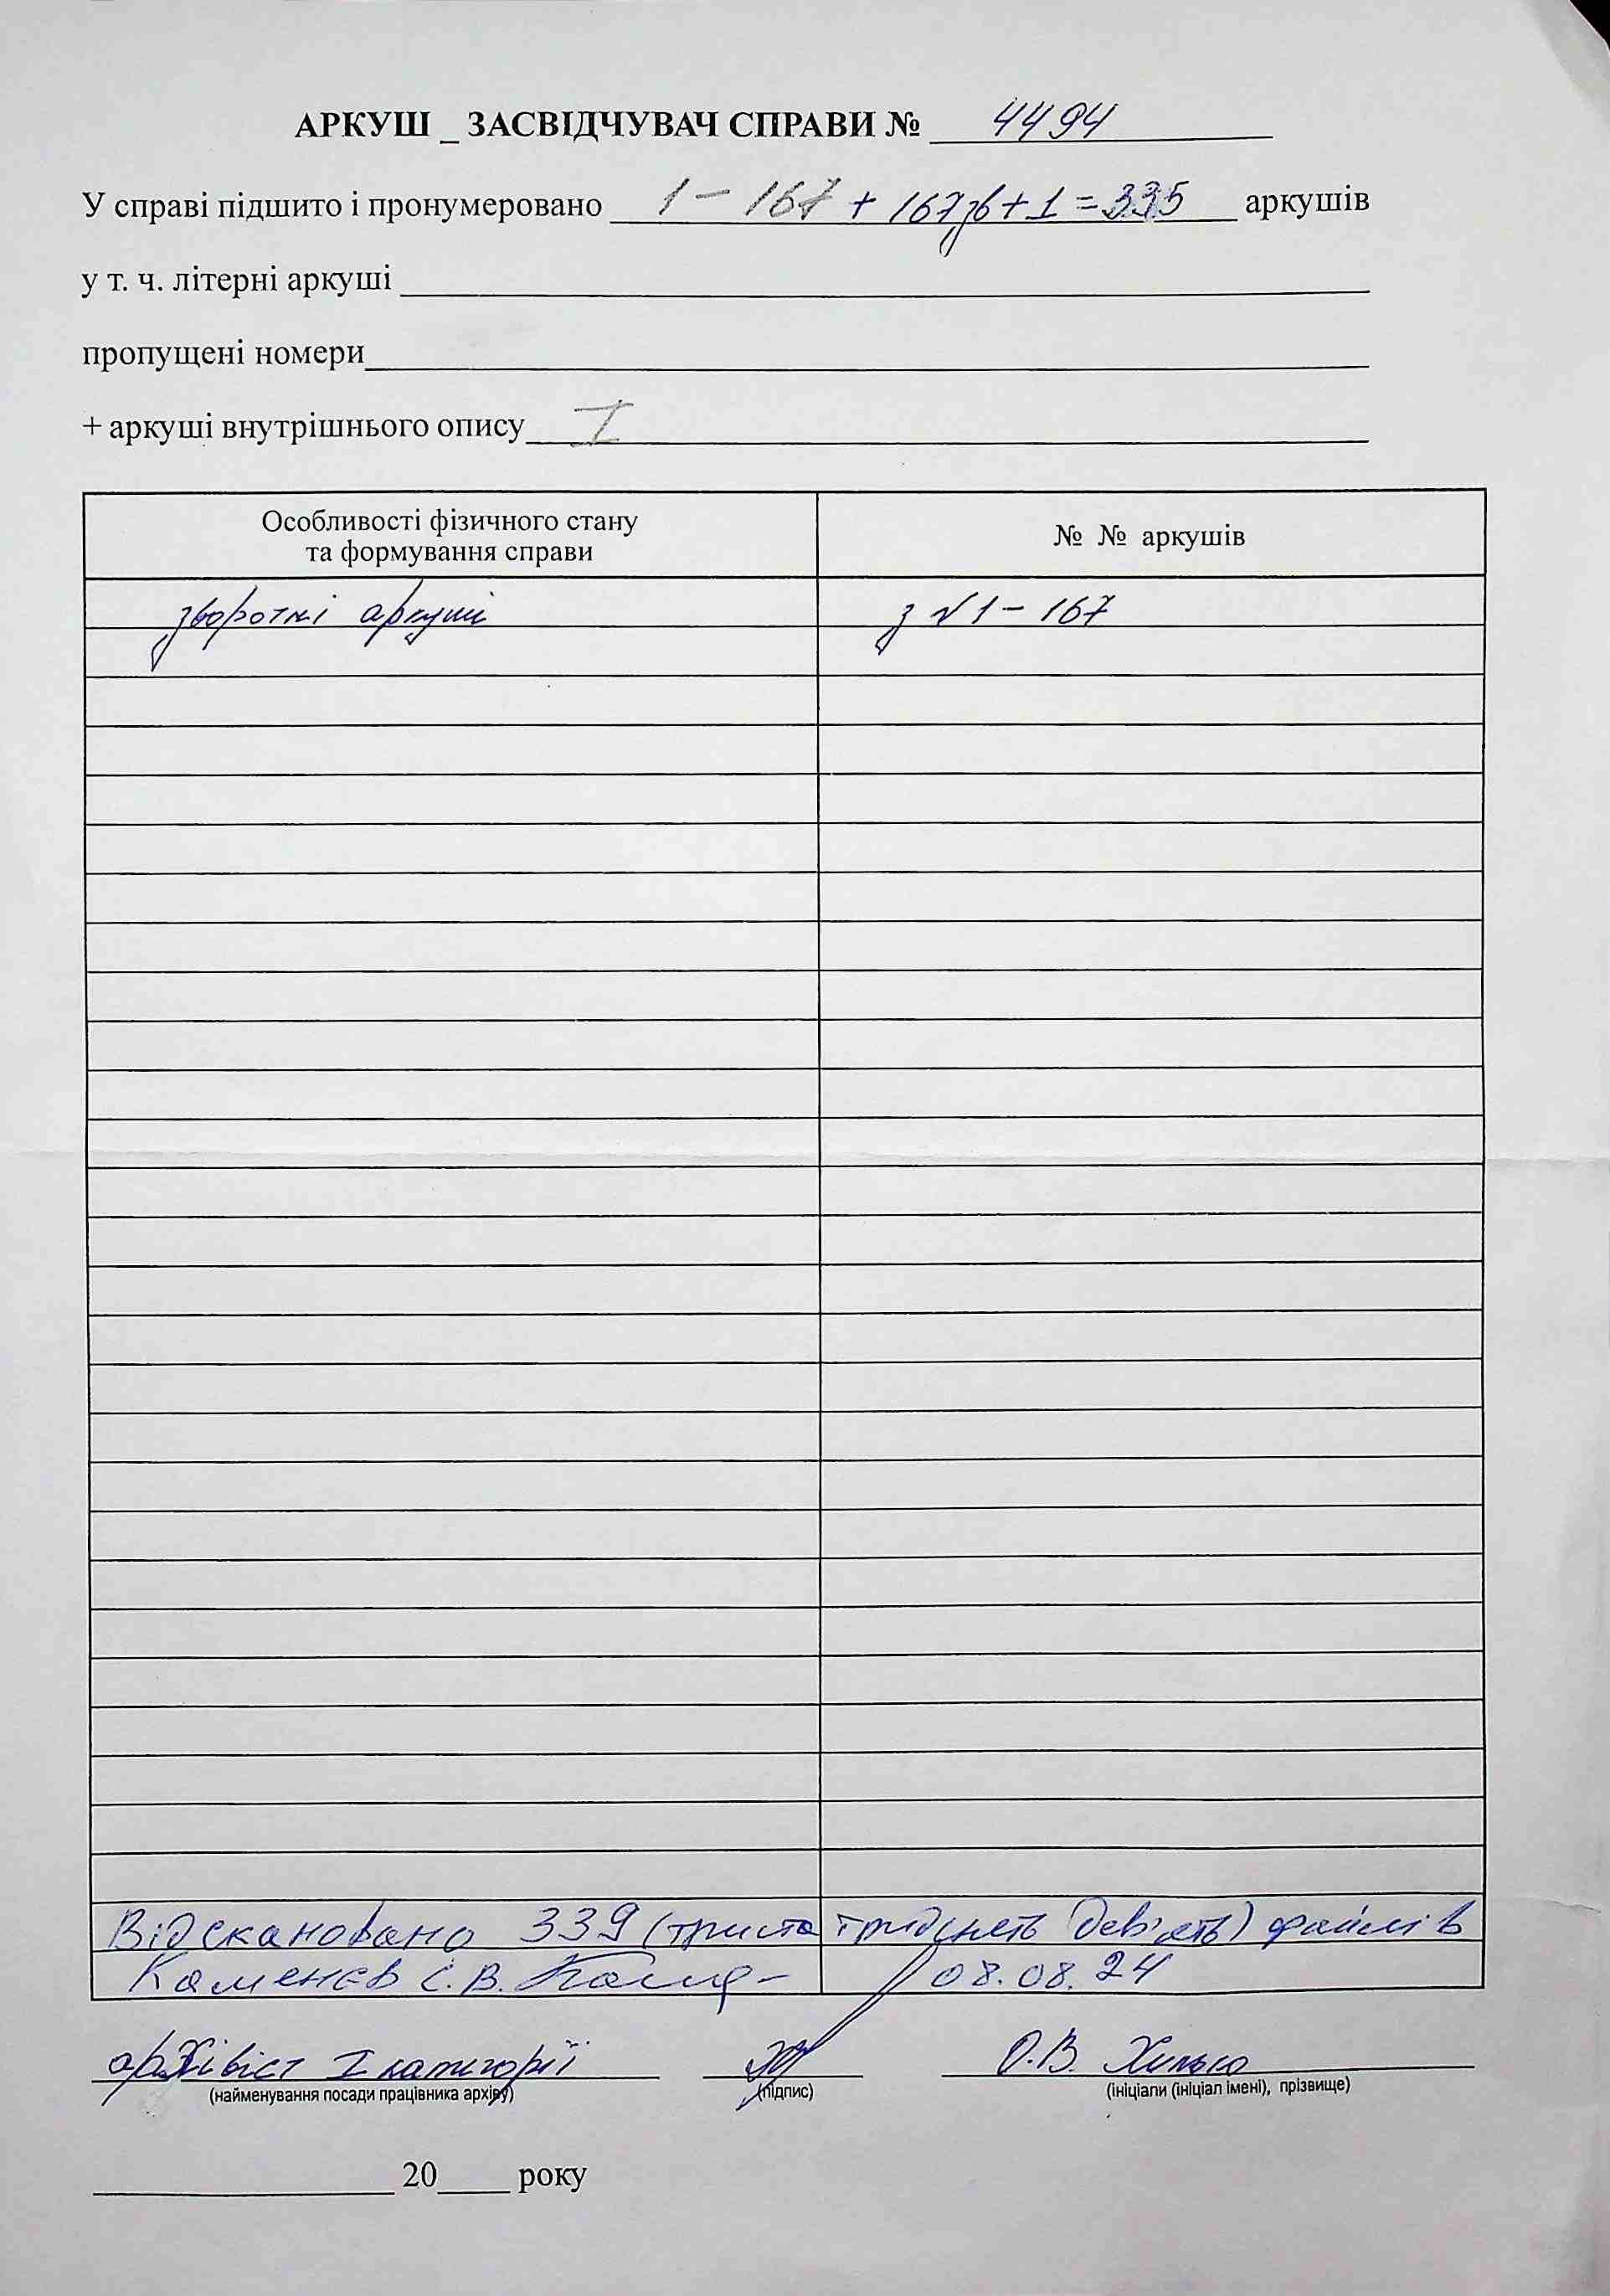 АРКУШ _ ЗАСВІДЧУВАЧ СПРАВИ № 4494
У справі підшито і пронумеровано 1 – 167 + 167зв + 1 = 335 аркушів
у т. ч. літерні аркуші
пропущені номери
+ аркуші внутрішнього опису I
Особливості фізичного стану
та формування справи
№ № аркушів
зворотні аркуші з №1 – 167
Відскановано 339 (триста тридцять дев'ять) файлів
Каменєв С.В. 08.08.24
архівіст I категорії О.В. Хилько
(найменування посади працівника архіву) (підпис) (ініціали (ініціал імені), прізвище)
20 року